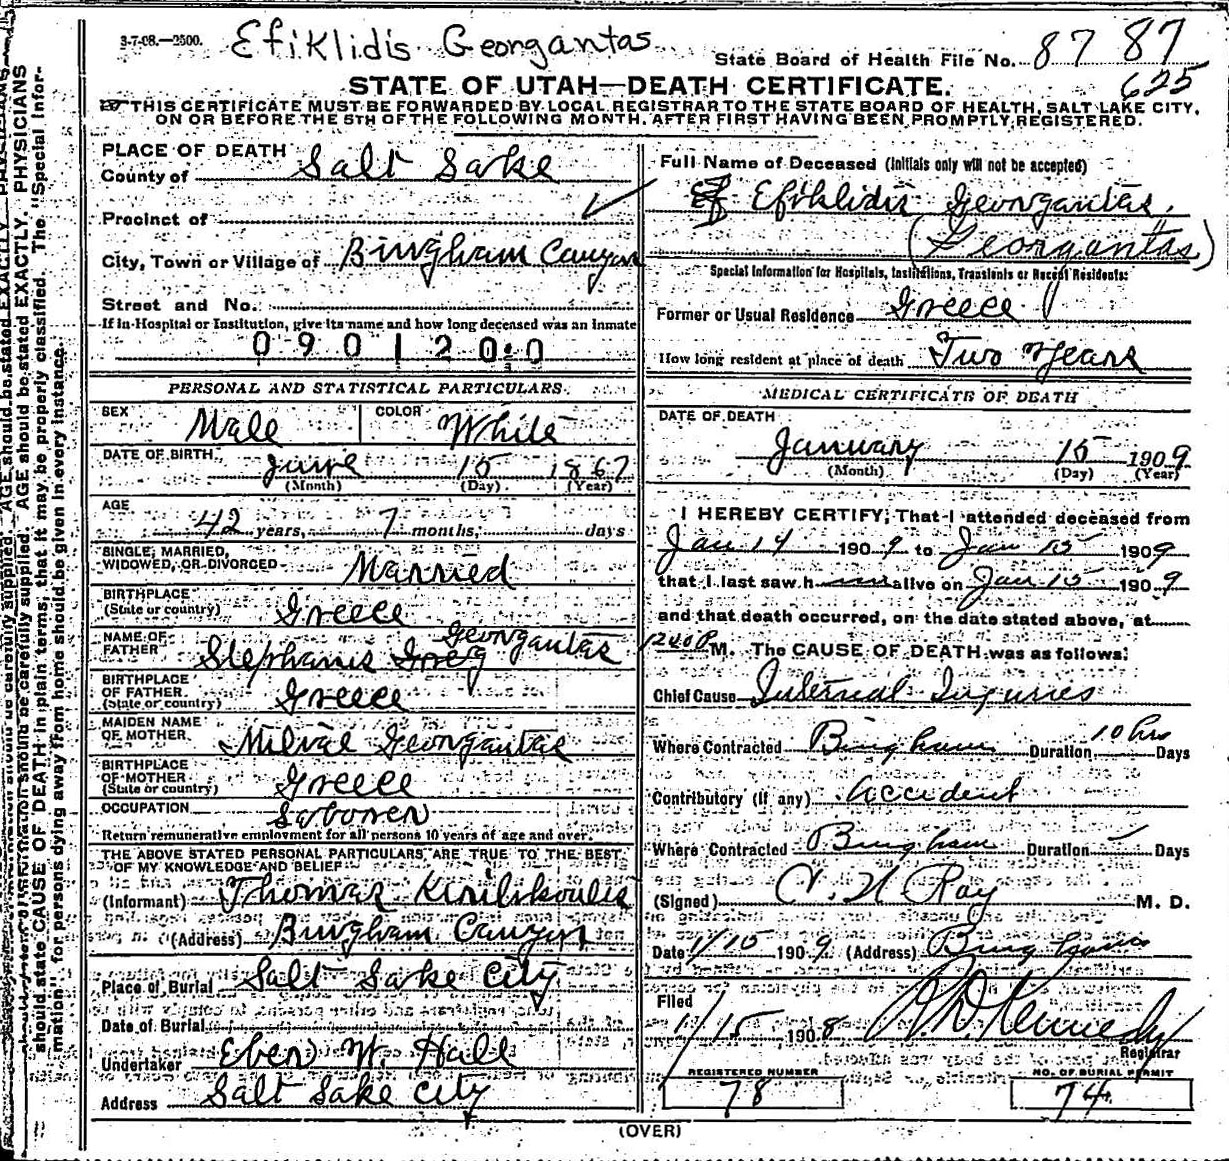 3-7-08.—2500.
Efiklidis Georgantas
State Board of Health File No. 87 87
625
STATE OF UTAH—DEATH CERTIFICATE.
THIS CERTIFICATE MUST BE FORWARDED BY LOCAL REGISTRAR TO THE STATE BOARD OF HEALTH, SALT LAKE CITY,
ON OR BEFORE THE 5TH OF THE FOLLOWING MONTH, AFTER FIRST HAVING BEEN PROMPTLY REGISTERED.
AGE should be stated EXACTLY. PHYSICIANS
should state CAUSE OF DEATH in plain terms, that it may be properly classified. The "Special Infor-
mation" for persons dying away from home should be given in every instance.
PLACE OF DEATH
County of Salt Lake
Precinct of
City, Town or Village of Bingham Canyon
Street and No.
If in Hospital or Institution, give its name and how long deceased was an inmate
0901200
PERSONAL AND STATISTICAL PARTICULARS.
SEX Male COLOR White
DATE OF BIRTH June 15 1867
(Month) (Day) (Year)
AGE
42 years, 7 months, days
SINGLE, MARRIED,
WIDOWED, OR DIVORCED Married
BIRTHPLACE
(State or country) Greece
NAME OF
FATHER Stephanis Georg Georgantas
BIRTHPLACE
OF FATHER
(State or country) Greece
MAIDEN NAME
OF MOTHER Milvae Georgantas
BIRTHPLACE
OF MOTHER
(State or country) Greece
OCCUPATION Laborer
Return remunerative employment for all persons 10 years of age and over.
THE ABOVE STATED PERSONAL PARTICULARS ARE TRUE TO THE BEST
OF MY KNOWLEDGE AND BELIEF
(Informant) Thomas Kirilikoulis
(Address) Bingham Canyon
Place of Burial Salt Lake City
Date of Burial
Undertaker Eber W Hall
Address Salt Lake City
Full Name of Deceased (Initials only will not be accepted)
Ef Efiklidis Georgantas.
(Georgantas)
Special Information for Hospitals, Institutions, Transients or Recent Residents:
Former or Usual Residence Greece
How long resident at place of death Two Years
MEDICAL CERTIFICATE OF DEATH
DATE OF DEATH
January 15 1909
(Month) (Day) (Year)
I HEREBY CERTIFY, That I attended deceased from
Jan 14 1909 to Jan 15 1909
that I last saw h im alive on Jan 15 1909
and that death occurred, on the date stated above, at
1240 P M. The CAUSE OF DEATH was as follows:
Chief Cause Internal Injuries
Where Contracted Bingham Duration 10 hrs Days
Contributory (if any) Accident
Where Contracted Bingham Duration Days
(Signed) C. N Ray M. D.
Date 1/15 1909 (Address) Bingham
Filed
1/15 1908 Kennedy
Registrar
REGISTERED NUMBER
78
NO. OF BURIAL PERMIT
74
(OVER)